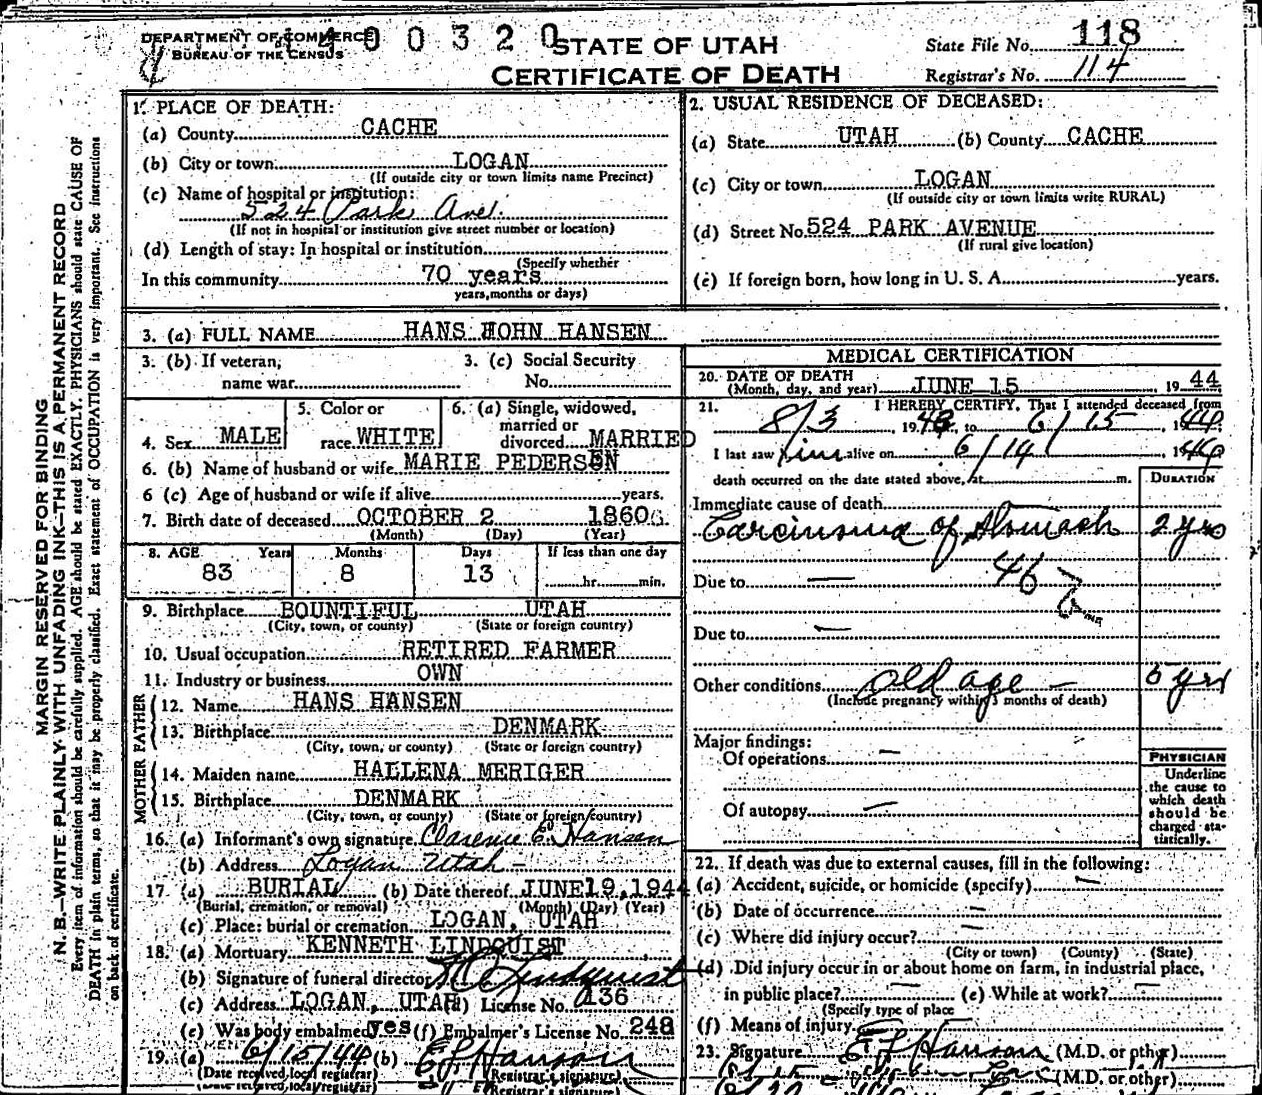 DEPARTMENT OF COMMERCE
BUREAU OF THE CENSUS
400320
STATE OF UTAH
CERTIFICATE OF DEATH
State File No. 118
Registrar's No. 114
MARGIN RESERVED FOR BINDING
N. B.—WRITE PLAINLY WITH UNFADING INK—THIS IS A PERMANENT RECORD
Every item of information should be carefully supplied. AGE should be stated EXACTLY. PHYSICIANS should state CAUSE OF
DEATH in plain terms, so that it may be properly classified. Exact statement of OCCUPATION is very important. See instructions
on back of certificate.
1. PLACE OF DEATH:
(a) County CACHE
(b) City or town LOGAN
(If outside city or town limits name Precinct)
(c) Name of hospital or institution:
524 Park Ave.
(If not in hospital or institution give street number or location)
(d) Length of stay: In hospital or institution
(Specify whether
In this community 70 years
years, months or days)
2. USUAL RESIDENCE OF DECEASED:
(a) State UTAH (b) County CACHE
(c) City or town LOGAN
(If outside city or town limits write RURAL)
(d) Street No. 524 PARK AVENUE
(If rural give location)
(e) If foreign born, how long in U. S. A. years.
3. (a) FULL NAME HANS JOHN HANSEN
3. (b) If veteran,
name war
3. (c) Social Security
No.
4. Sex MALE
5. Color or
race WHITE
6. (a) Single, widowed,
married or
divorced MARRIED
6. (b) Name of husband or wife MARIE PEDERSEN
6 (c) Age of husband or wife if alive years.
7. Birth date of deceased OCTOBER 2 1860
(Month) (Day) (Year)
8. AGE Years Months Days If less than one day
83 8 13 hr. min.
9. Birthplace BOUNTIFUL UTAH
(City, town, or county) (State or foreign country)
10. Usual occupation RETIRED FARMER
11. Industry or business OWN
FATHER
12. Name HANS HANSEN
13. Birthplace DENMARK
(City, town, or county) (State or foreign country)
MOTHER
14. Maiden name HALLENA MERIGER
15. Birthplace DENMARK
(City, town, or county) (State or foreign country)
16. (a) Informant's own signature Clarence E. Hansen
(b) Address Logan Utah
17. (a) BURIAL (b) Date thereof JUNE 19, 1944
(Burial, cremation, or removal) (Month) (Day) (Year)
(c) Place: burial or cremation LOGAN, UTAH
18. (a) Mortuary KENNETH LINDQUIST
(b) Signature of funeral director Lindquist
(c) Address LOGAN, UTAH (d) License No. 136
(e) Was body embalmed yes (f) Embalmer's License No. 248
19. (a) 6/15/44 (b) E L Hanson
(Date received local registrar) (Registrar's signature)
(Date received local registrar) (Registrar's signature)
MEDICAL CERTIFICATION
20. DATE OF DEATH
(Month, day, and year) JUNE 15 1944
21. I HEREBY CERTIFY, That I attended deceased from
8/3, 1943, to 6/15 1944
I last saw him alive on 6/14 1944
death occurred on the date stated above, at m.
DURATION
Immediate cause of death
Carcinoma of Stomach 2 yrs
46 b
Due to —
Due to —
Other conditions old age — 5 yrs
(Include pregnancy within 3 months of death)
Major findings:
Of operations —
Of autopsy —
PHYSICIAN
Underline
the cause to
which death
should be
charged sta-
tistically.
22. If death was due to external causes, fill in the following:
(a) Accident, suicide, or homicide (specify) —
(b) Date of occurrence —
(c) Where did injury occur? —
(City or town) (County) (State)
(d) Did injury occur in or about home on farm, in industrial place,
in public place? — (e) While at work? —
(Specify type of place
(f) Means of injury —
23. Signature E L Hanson (M.D. or other)
(M.D. or other)